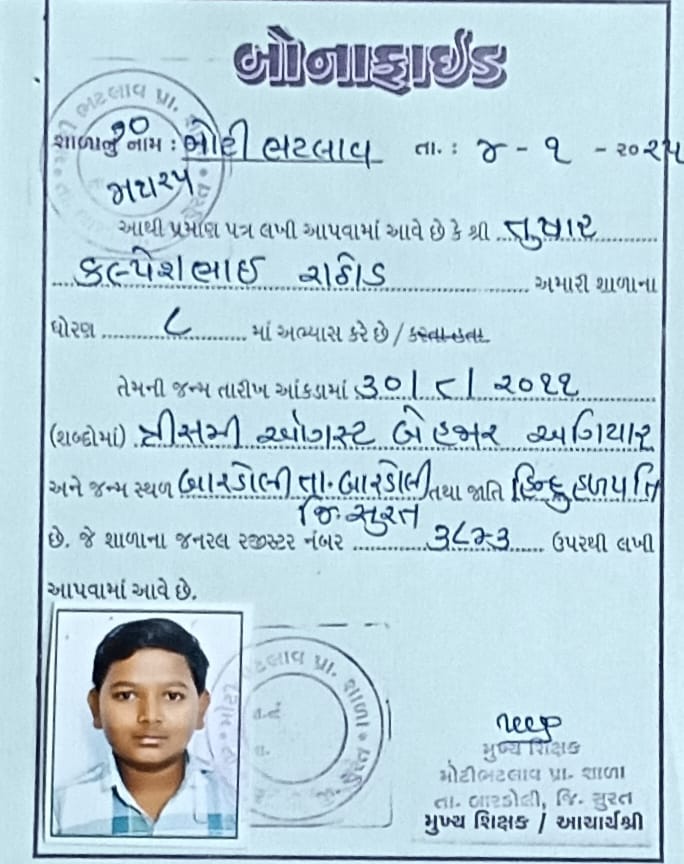 બોનાફાઈડ
શાળાનું નામ : મોટી ભટલાવ તા. : ૪ - ૧ - ૨૦૨૫
આથી પ્રમાણ પત્ર લખી આપવામાં આવે છે કે શ્રી તુષાર
કલ્પેશભાઈ રાઠોડ અમારી શાળાના
ધોરણ ૮ માં અભ્યાસ કરે છે / કરતા હતા
તેમની જન્મ તારીખ આંકડામાં ૩૦/૮/૨૦૧૧
(શબ્દોમાં) ત્રીસમી ઓગસ્ટ બે હજાર અગિયાર
અને જન્મ સ્થળ બારડોલી તા. બારડોલી તથા જાતિ હિન્દુ હળપતિ
જિ. સુરત
છે. જે શાળાના જનરલ રજીસ્ટર નંબર ઉપરથી લખી
આપવામાં આવે છે.
મુખ્ય શિક્ષક
મોટીભટલાવ પ્રા. શાળા
તા. બારડોલી, જિ. સુરત
મુખ્ય શિક્ષક / આચાર્યશ્રી